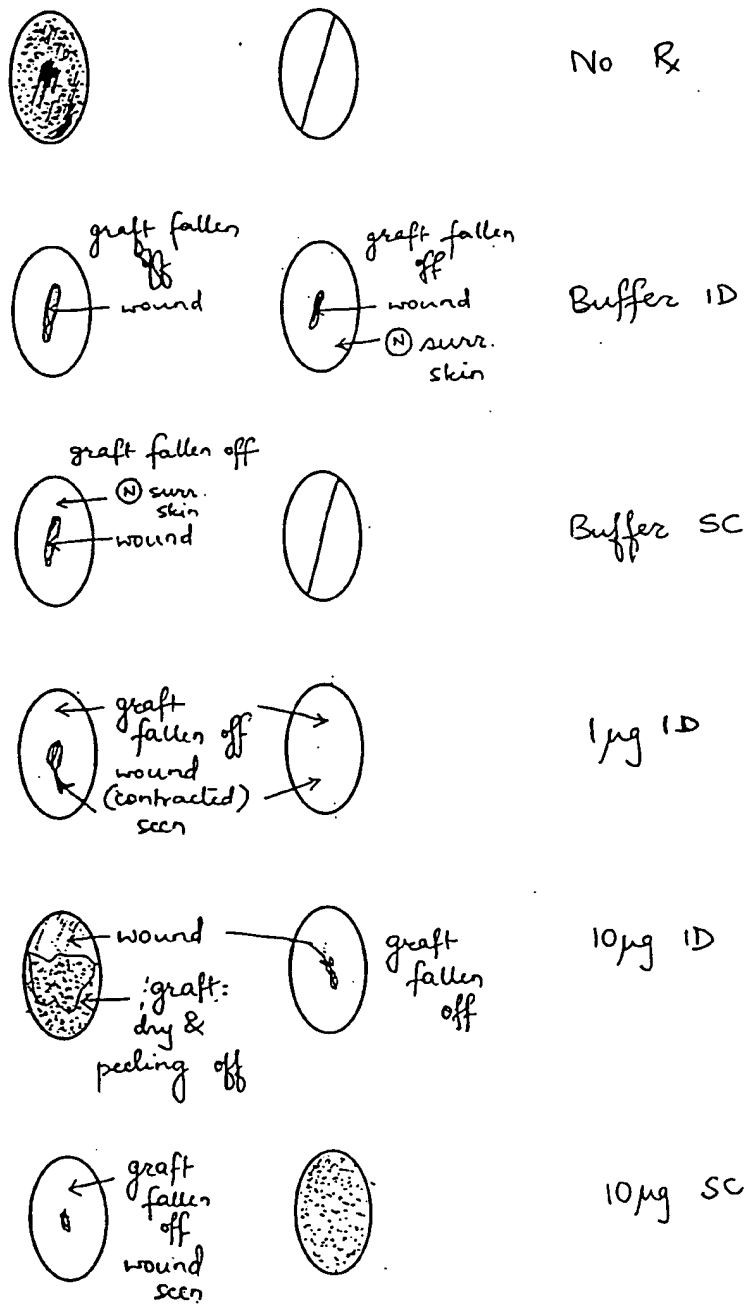 No Rx
graft fallen
off
wound
graft fallen
off
wound
Ⓝ surr.
skin
Buffer ID
graft fallen off
Ⓝ surr.
skin
wound
Buffer SC
graft
fallen off
wound
(contracted)
seen
1μg ID
wound
graft:
dry &
peeling off
graft
fallen
off
10μg ID
graft
fallen
off
wound
seen
10μg SC